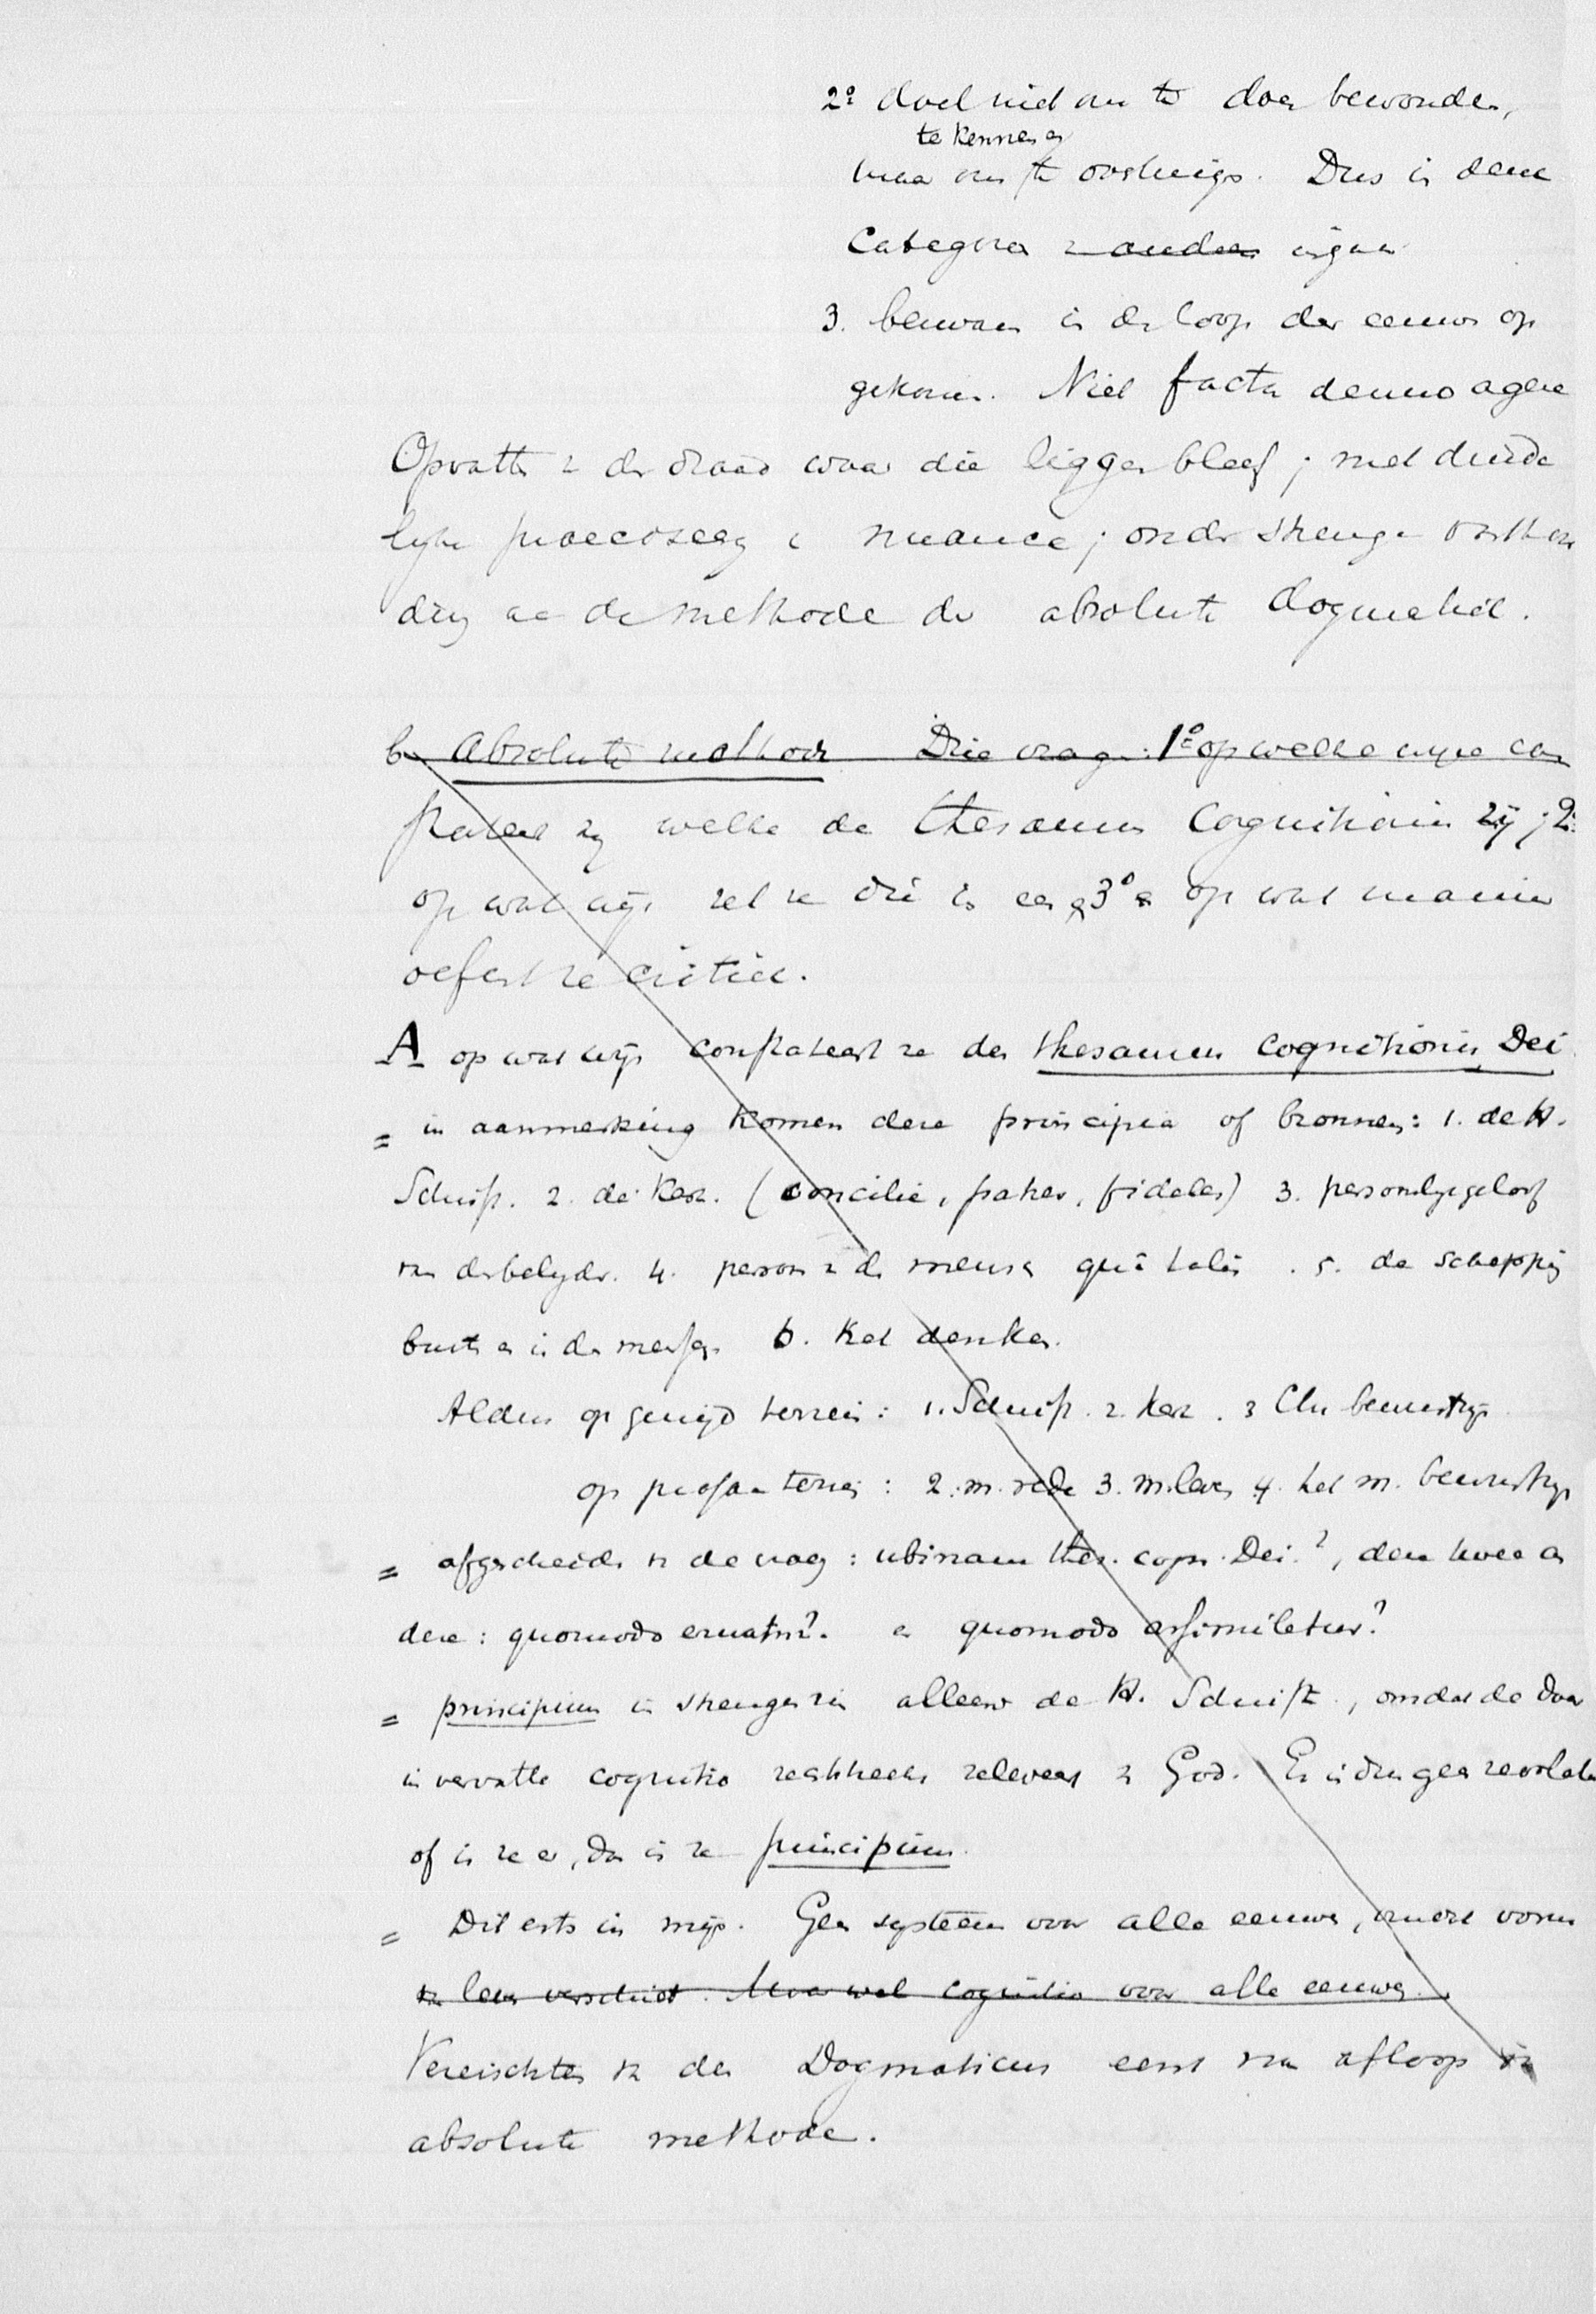 2º doel niet om te doen bewonderen,
te kennen en
maar om te overtuigen. Dus in deze
Categorien v anderen eigen
3. bezwaren in den loop der eeuwen op
gekomen. Niet facta denuo agere
Opvatten v den draad waar die liggen bleef; met duide
lijke praeciseering i nuance; onder strenge
ding aan de methode der absolute dogmatiek.
b. Absolute methode Drie vragen: 1º op welke wijze con
stateert zij welke de thesaurus Cognitionis zij; 2º
op wat wijs zet ze die in een 3º op wat manier
oefent ze critiek.
A op wat wijs constateert ze den thesaurus cognitionis Dei
= in aanmerking komen deze principia of bronnen: 1. de H.
Schrift. 2. de Kerk. (concilie, patres, fideles) 3. persoonlijk geloof
van den belijder. 4. persoon v den mensch quâ talis. 5. de schepping
buiten en in den mensch. 6. het denken.
Aldus op gewijd terrein: 1. Schrift. 2. Kerk. 3 Chr bewustzijn
op profaan terrein: 2. m. rede 3. m. leven 4. het m. bewustzijn
= afgescheiden v de vraag: ubinam thes. cogn. Dei?, deze twee an
dere: quomodo eruatur? en quomodo assimiletur?
= principium in strengen zin alleen de H. Schrift, omdat de daar
in vervatte cognitio rechtstreeks releveert v God. Er is dus geen revelatie
of is ze er, dan is ze principium.
= Dit eerts in mijn. Geen systeem voor alle eeuwen, want vorm
van leven verschiet. Maar wel cognitio voor alle eeuwen.
Vereischten v den Dogmaticus eerst na afloop v
absolute methode.